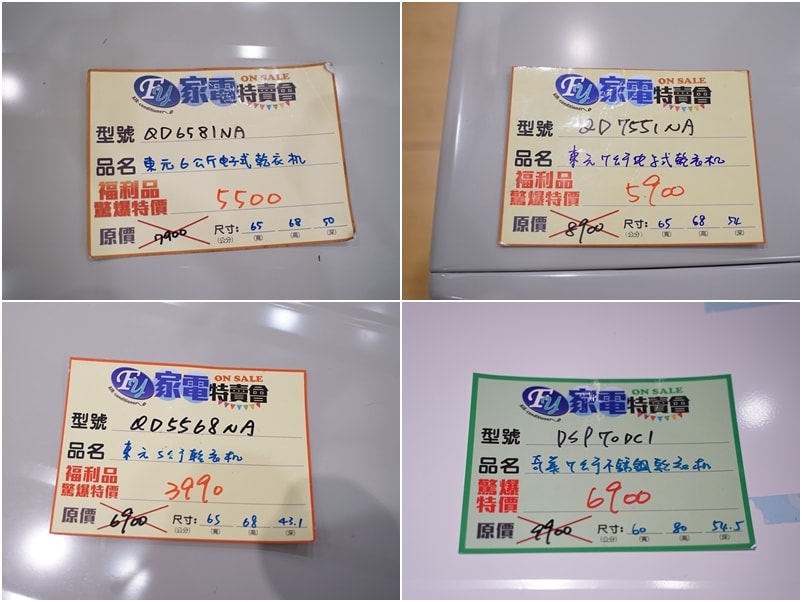 FY 家電特賣會 ON SALE
型號 QD6581NA
品名 東元6公斤电子式乾衣机
福利品
驚爆特價 5500
原價 7900 尺寸: 65 68 50
(公分) (寬) (高) (深)
FY 家電特賣會 ON SALE
型號 QD7551NA
品名 東元7公斤电子式乾衣机
福利品
驚爆特價 5900
原價 8900 尺寸: 65 68 54
(公分) (寬) (高) (深)
FY 家電特賣會 ON SALE
型號 QD5568NA
品名 東元5公斤乾衣机
福利品
驚爆特價 3990
原價 6900 尺寸: 65 68 43.1
(公分) (寬) (高) (深)
FY 家電特賣會 ON SALE
型號 DSP70DC1
品名 奇菱7公斤不銹鋼乾衣机
驚爆
特價 6900
原價 9900 尺寸: 60 80 54.5
(公分) (寬) (高) (深)